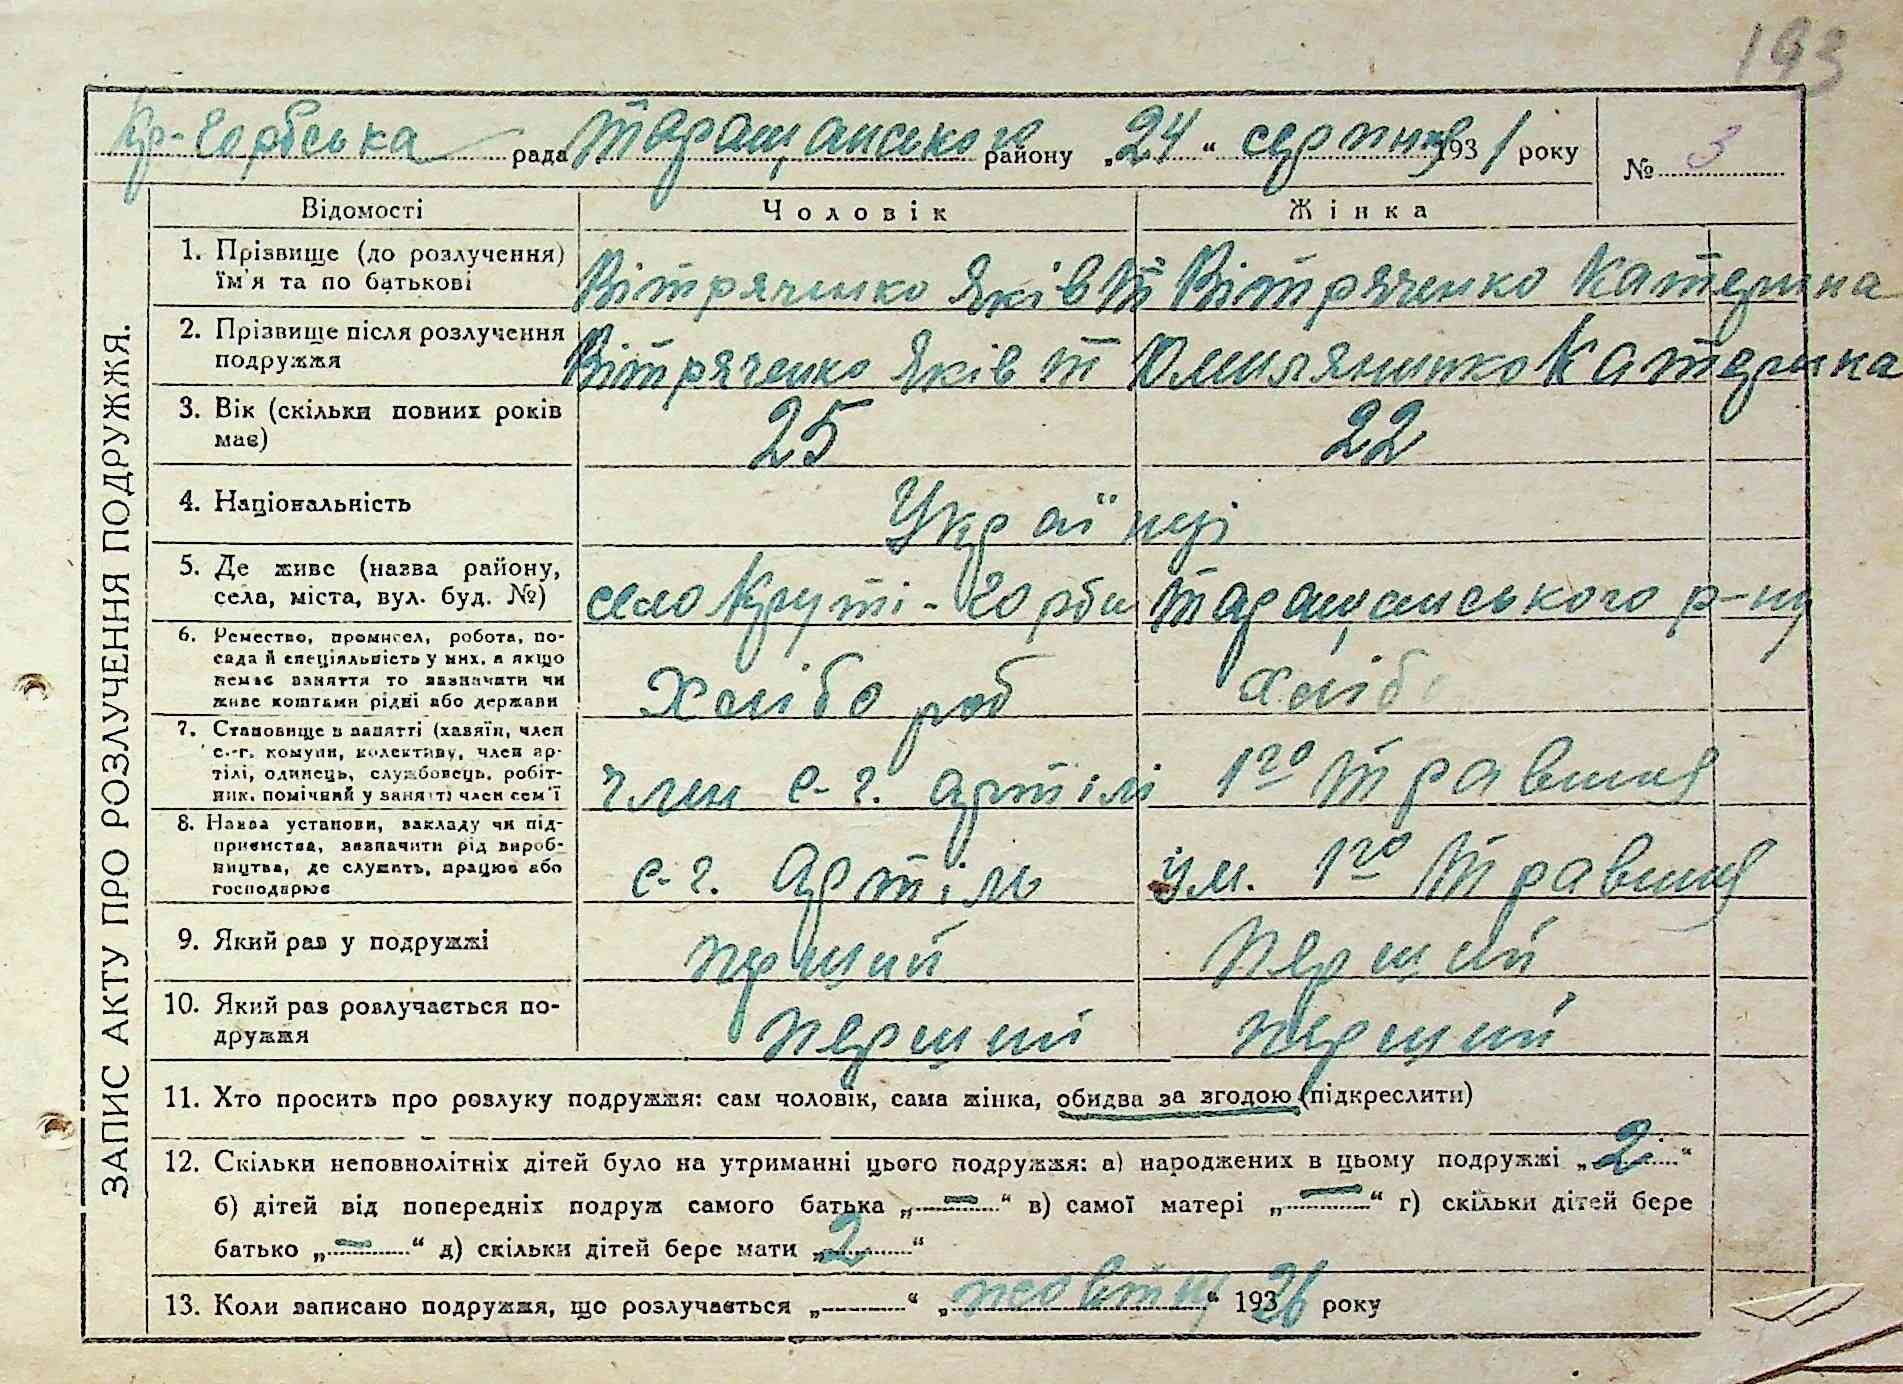 193
Кр-Горбська рада Таращанського району „24“ серпня 1931 року № 3
ЗАПИС АКТУ ПРО РОЗЛУЧЕННЯ ПОДРУЖЖЯ.
Відомості Чоловік Жінка
1. Прізвище (до розлучення)
їм'я та по батькові
Вітряченко Яків Т Вітряченко Катерина
2. Прізвище після розлучення
подружжя
Вітряченко Яків Т Омиляненко Катерина
3. Вік (скільки повних років
має)
25 22
4. Національність
Українці
5. Де живе (назва району,
села, міста, вул. буд. №)
село Круті-Горби Таращанського р-ну
6. Ремество, промисел, робота, по-
сада й спеціяльність у них, а якщо
немає заняття то зазначити чи
живе коштами рідні або держави
Хлібороб Хлібо
7. Становище в занятті (хазяїн, член
с.-г. комуни, колективу, член ар-
тілі, одинець, службовець, робіт-
ник, помічний у занятті член сем'ї
член с-г. артілі 1го Травня
8. Назва установи, закладу чи під-
приємства, зазначити рід вироб-
ництва, де служить, працює або
господарює
с-г. артіль ім. 1го Травня
9. Який раз у подружжі
перший перший
10. Який раз розлучається по-
дружжя
перший перший
11. Хто просить про розлуку подружжя: сам чоловік, сама жінка, обидва за згодою (підкреслити)
12. Скільки неповнолітніх дітей було на утриманні цього подружжя: а) народжених в цьому подружжі „2“
б) дітей від попередніх подруж самого батька „—“ в) самої матері „—“ г) скільки дітей бере
батько „—“ д) скільки дітей бере мати „2“
13. Коли записано подружжя, що розлучається „ “ „ “ 193 26 року